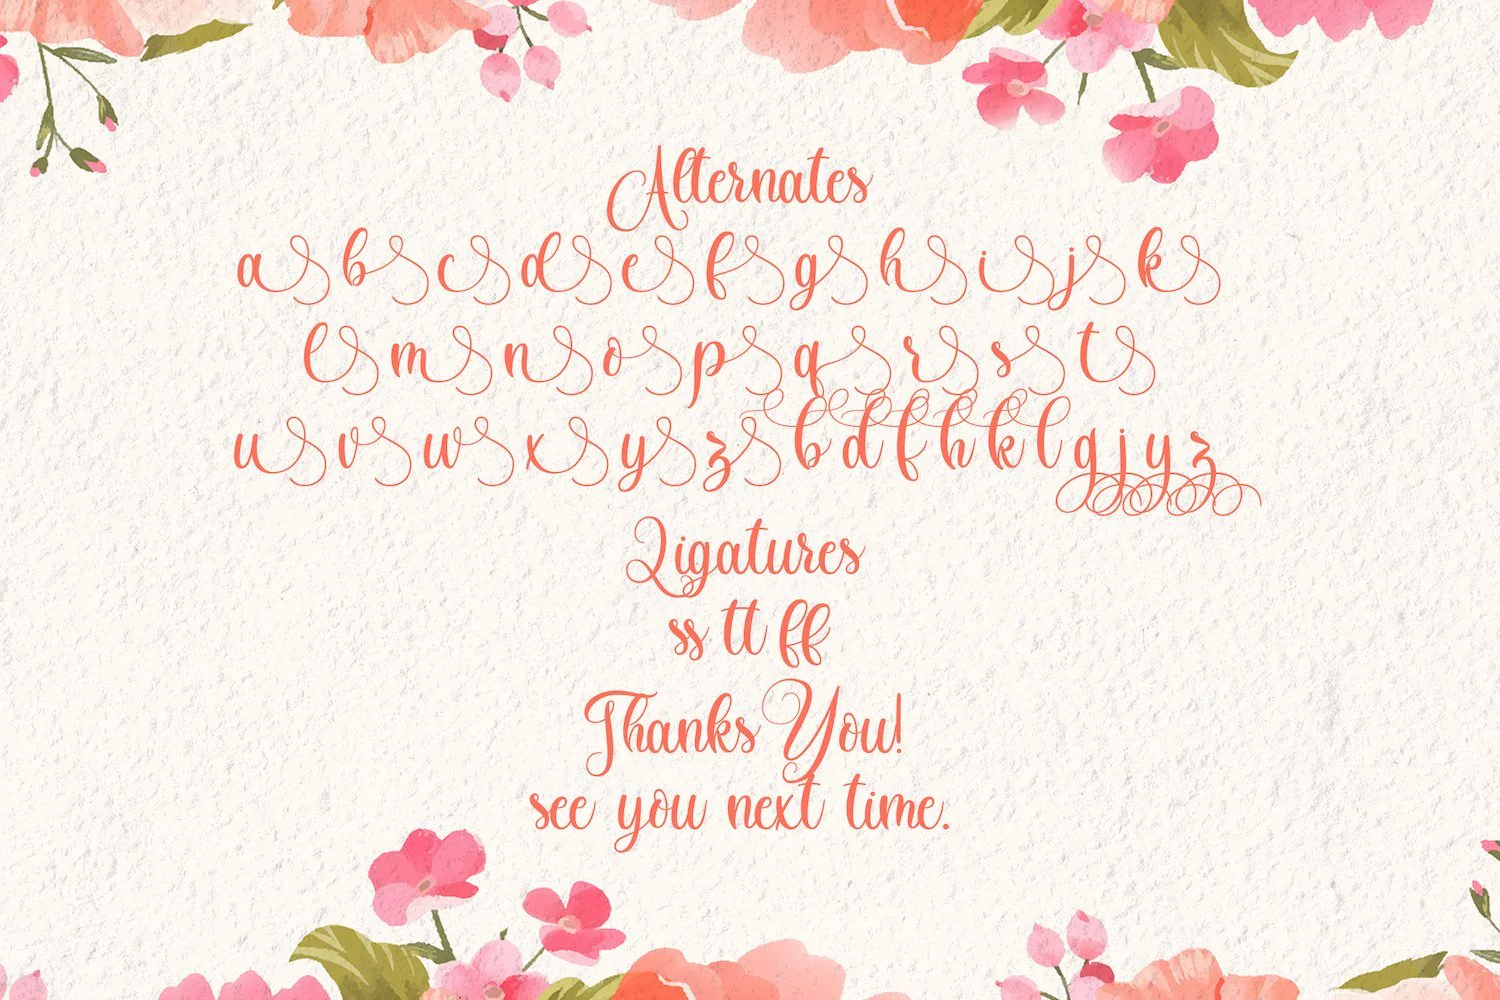 Alternates
a b c d e f g h i j k
l m n o p q r s t
u v w x y z b d f h k l g j y z
Ligatures
ss tt ff
Thanks You!
see you next time.